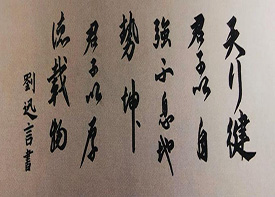 天行健
君子以自
強不息地
勢坤
君子以厚
德載物
劉迅言書